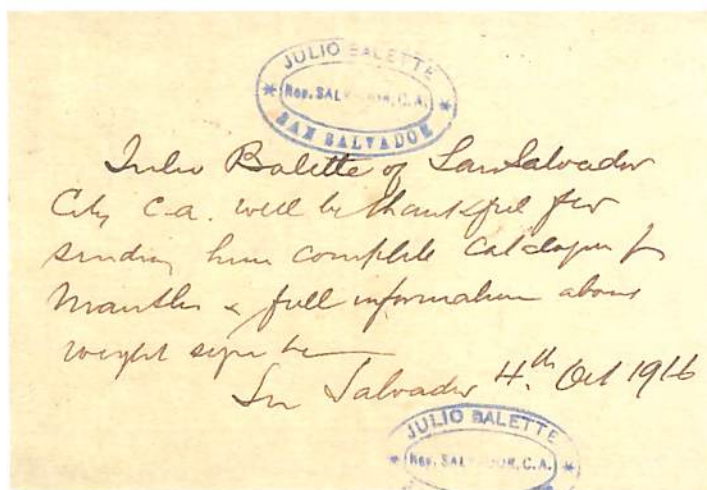 JULIO BALETTE
* Rep. SALVADOR, C.A. *
SAN SALVADOR
Julio Balette of San Salvador
City C.a. will be thankful for
sending him complete Catalogue for
Mantles & full information about
weight
San Salvador 4.th Oct 1916
JULIO BALETTE
* Rep. SALVADOR, C.A. *